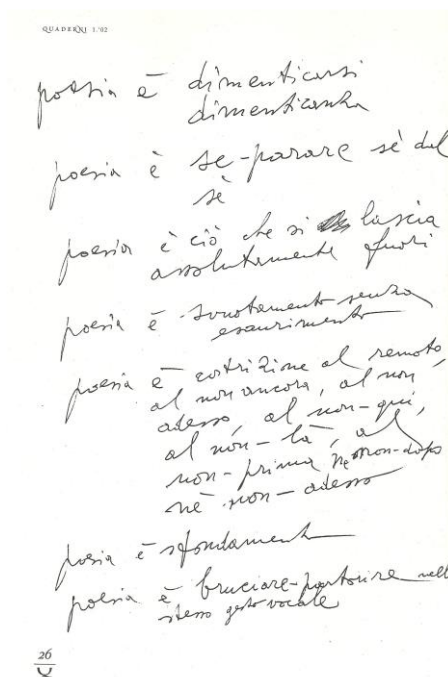 QUADERNI 1.'02
poesia è dimenticarsi
dimenticanza
poesia è se-parare sé dal
sé
poesia è ciò che si lascia
assolutamente fuori
poesia è svuotamento senza
esaurimento
poesia è costrizione al remoto,
al non ancora, al non
adesso, al non-qui,
al non-là, al
non-prima né non-dopo
né non-adesso
poesia è sfondamento
poesia è bruciare-partorire nell
stesso gesto vocale
26